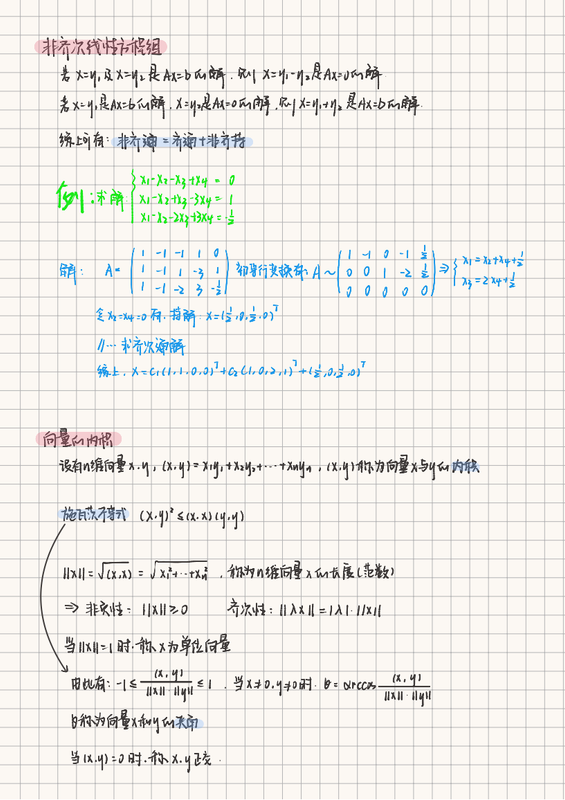 非齐次线性方程组
若 x=y₁及 x=y₂ 是 Ax=b 的解,则 x=y₁-y₂是 Ax=0的解
若 x=y₁是Ax=b的解,x=y₂是Ax=0的解,则 x=y₁+y₂ 是Ax=b的解.
综上可有: 非齐通=齐通+非齐特
例:求解 { x₁-x₂-x₃+x₄ = 0
x₁-x₂+x₃-3x₄ = 1
x₁-x₂-2x₃+3x₄ = -1/2
解: A = ( 1 -1 -1 1 0 ; 1 -1 1 -3 1 ; 1 -1 -2 3 -1/2 ) 初等行变换有: A ~ ( 1 -1 0 -1 1/2 ; 0 0 1 -2 1/2 ; 0 0 0 0 0 ) ⇒ { x₁=x₂+x₄+1/2 ; x₃=2x₄+1/2
令 x₂=x₄=0 有,特解: x=(1/2,0,1/2,0)ᵀ
//… 求齐次通解
综上, x=c₁(1,1,0,0)ᵀ+c₂(1,0,2,1)ᵀ+(1/2,0,1/2,0)ᵀ
向量的内积
设有n维向量x,y,(x,y)=x₁y₁+x₂y₂+…+xₙyₙ,(x,y)称为向量x与y的内积
施瓦茨不等式 (x,y)²≤(x,x)(y,y)
||x||=√(x,x) = √x₁²+…+xₙ² ,称为n维向量x的长度(范数)
⇒ 非负性: ||x||≥0 齐次性: ||λx||=|λ|·||x||
当||x||=1时,称x为单位向量
由此有: -1≤ (x,y)/||x||·||y|| ≤1 ,当x≠0,y≠0时, θ=arccos (x,y)/||x||·||y||
θ称为向量x和y的夹角
当(x,y)=0时,称x,y正交.